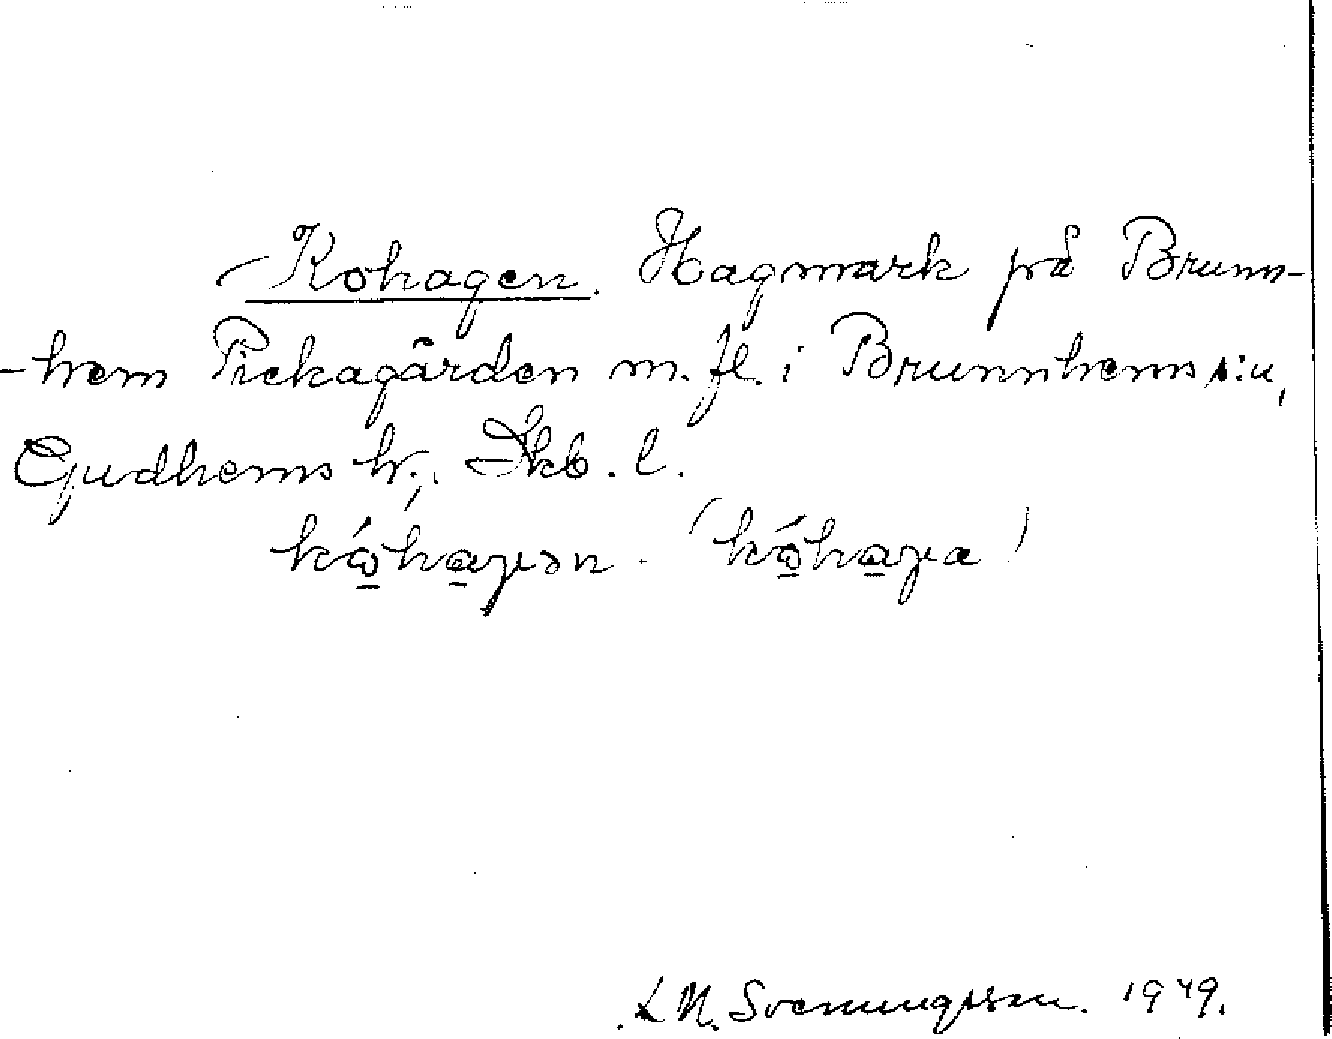 Kohagen. Hagmark på Brunn-
-hem Pickagården m.fl. i Brunnhems s:n,
Gudhems hr., Skb. l.
kóhaγən. (kóhaγa)
L.N. Svenungsson. 1949.